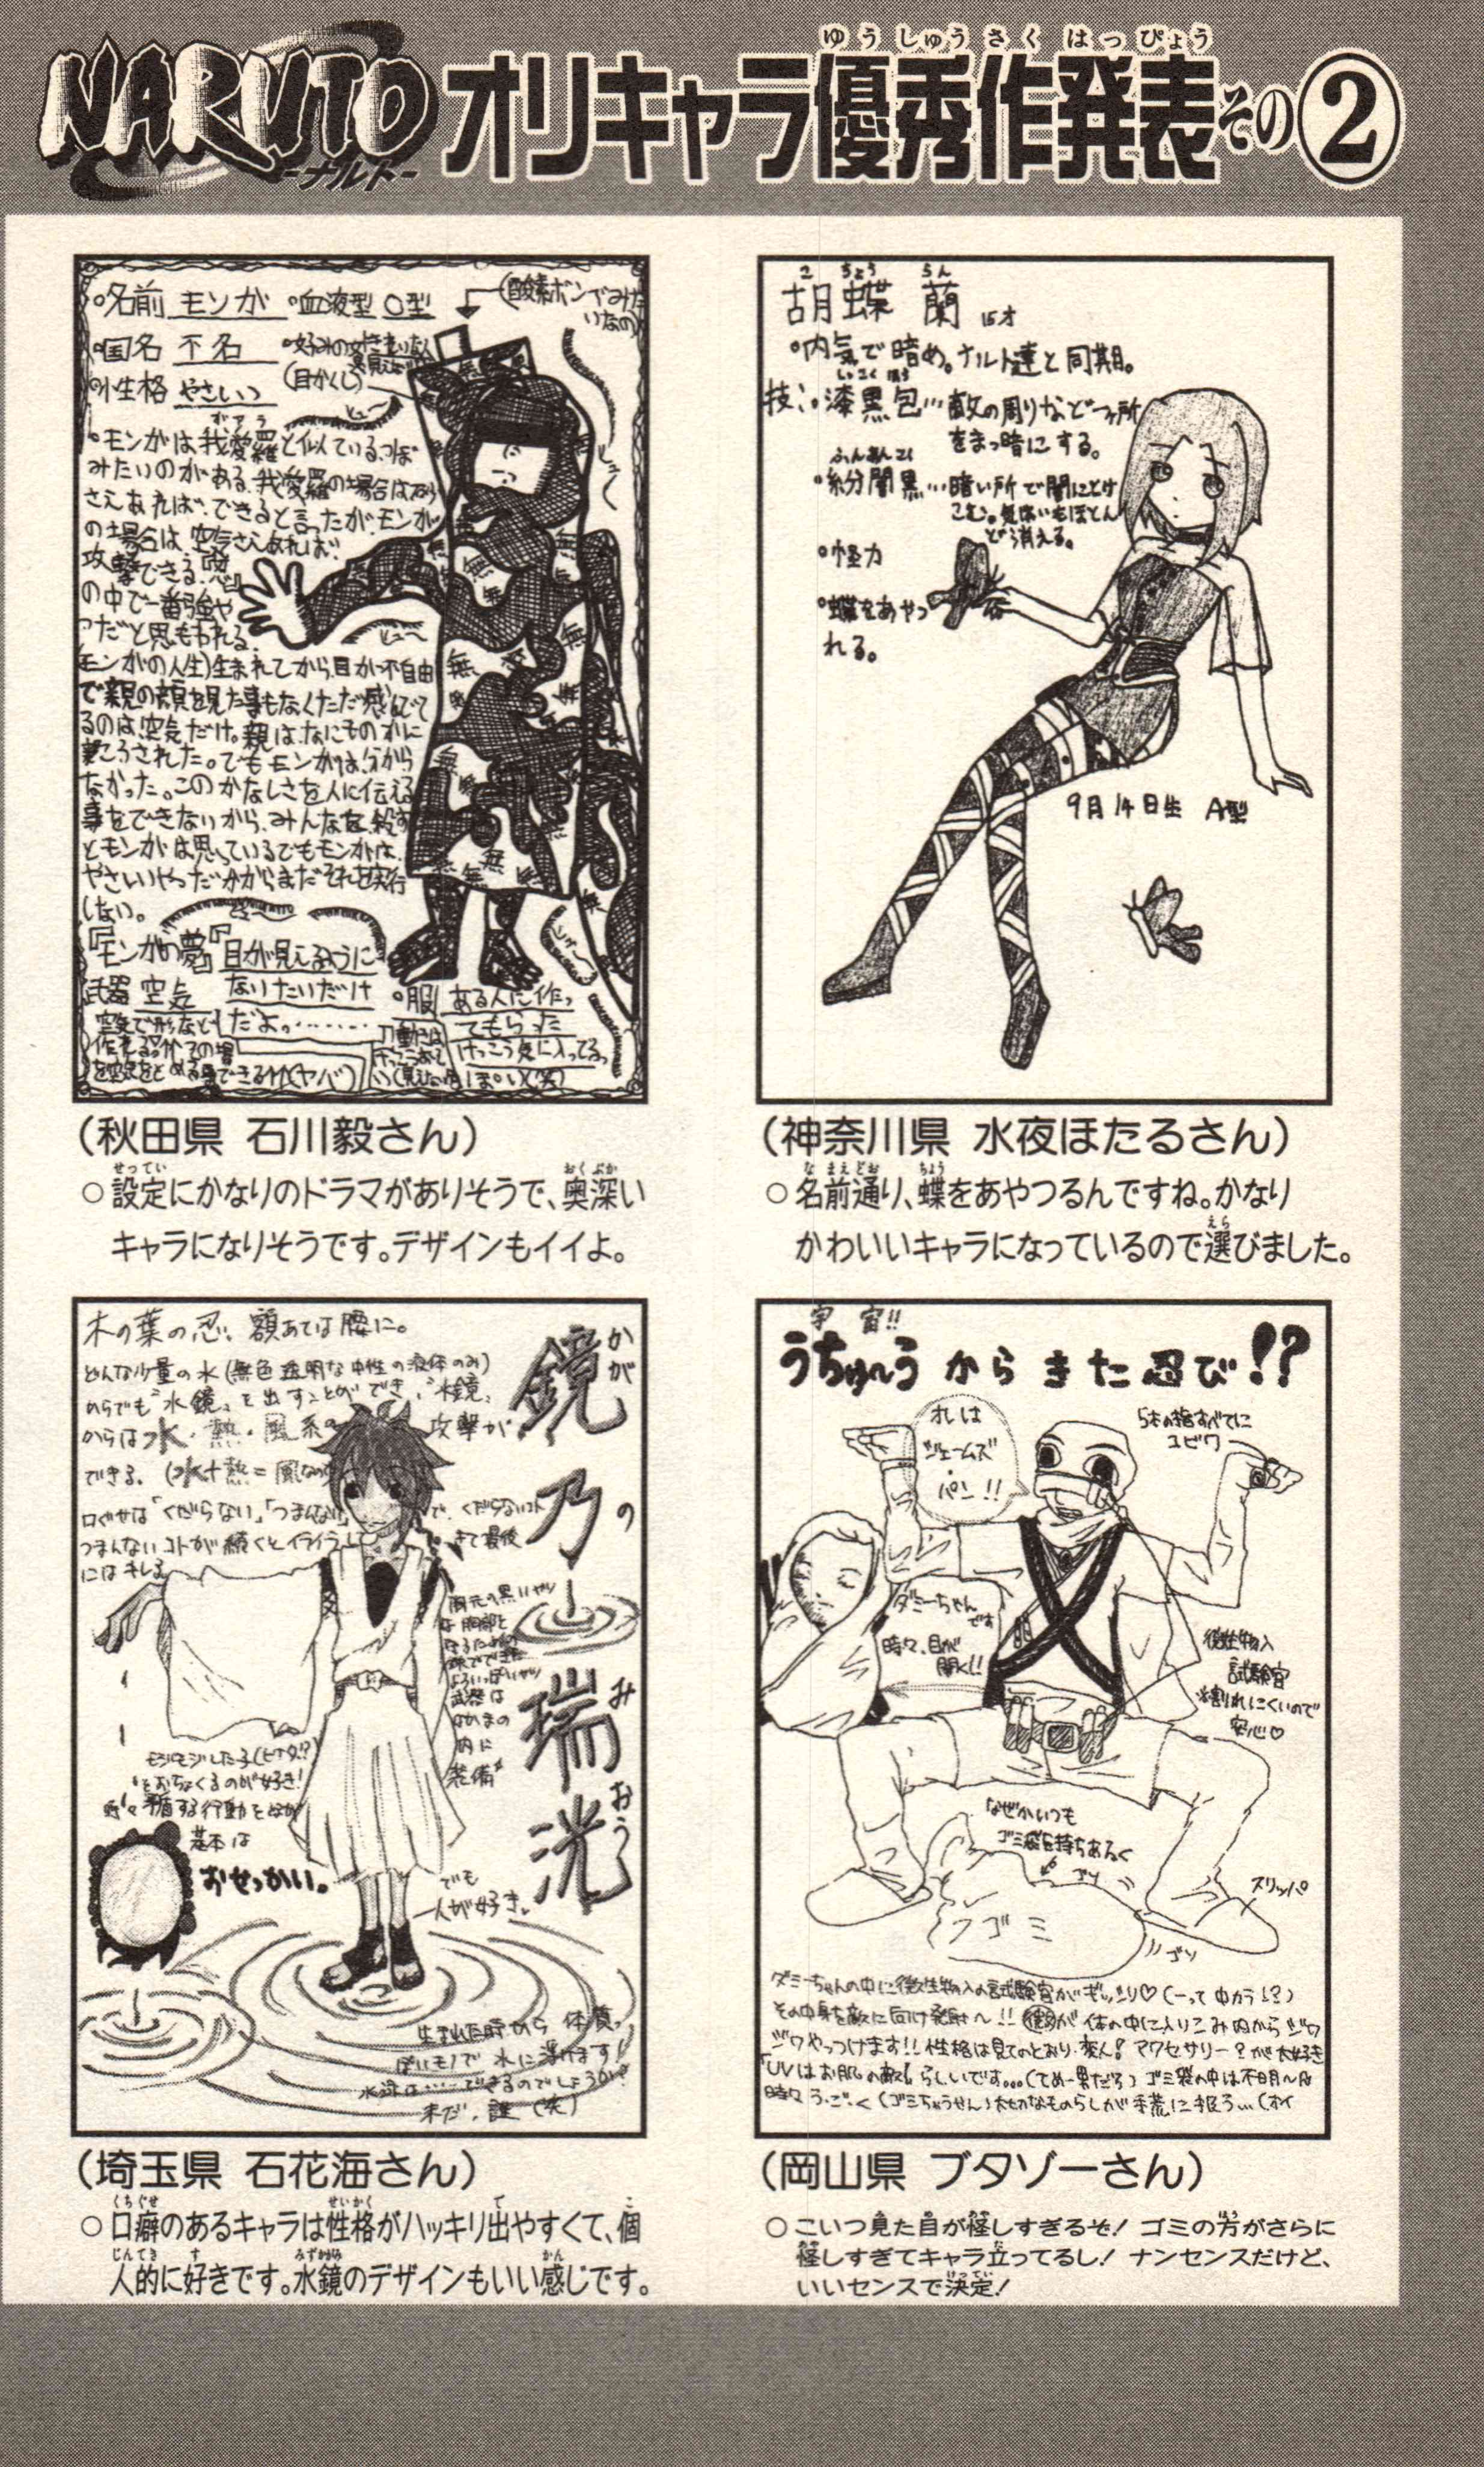 NARUTO
-ナルト-
オリキャラ優秀作発表その②
ゆうしゅうさくはっぴょう
・名前 モンガ ・血液型 O型
・国名 不名
・性格 やさいっ
(目かくし)
・モンガは我愛羅と似ているつぼ
みたいのがある。我愛羅の場合は砂
さえあれば、できると言ったがモンガ
の場合は空気さえあれば
攻撃できる。
の中で一番強や
つだと思もわれる。
モンガの人生)生まれてから目が不自由
で親の顔を見た事もなくただ感んでて
るのは空気だけ。親はなにものかに
ころされた。でもモンガは分から
なかった。このかなしさを人に伝える
事をできないから、みんなを殺す
とモンガは思っているでもモンガは
やさいいやつだかからまだそれを実行
しない。
『モンガの夢』『目が見えるように
なりたいだけ
だよ。……
武器 空気
・服 ある人に作っ
てもらった
けっこう気に入ってるっ
ぽい(笑)
(秋田県 石川毅さん)
せってい おくぶか
○設定にかなりのドラマがありそうで、奥深い
キャラになりそうです。デザインもイイよ。
こ ちょう らん
胡蝶 蘭 15才
・内気で暗め。ナルト達と同期。
しっこくほう
技:・漆黒包…敵の周りなど一ヶ所
をまっ暗にする。
ふんあんこく
・紛闇黒…暗い所で闇にとけ
こむ。気配もほとん
ど消える。
・怪力
・蝶をあやつ
れる。
9月14日生 A型
(神奈川県 水夜ほたるさん)
なまえどお ちょう
○名前通り、蝶をあやつるんですね。かなり
えら
かわいいキャラになっているので選びました。
木の葉の忍、額あては腰に。
どんな少量の水(無色透明な中性の液体のみ)
からでも"水鏡"を出すことができ、"水鏡"
からは水・熱・風系の攻撃が
できる。(水+熱=風なので
口ぐせは「くだらない」「つまんない」で、くだらないコト
つまんないコトが続くとイライラしてきて最後
にはキレる
かがの みおう
鏡乃 瑞洸
武器は
なかまの
内に
装備
モジモジした子(ヒナタ!?)
をおちょくるのが好き!
時々矛盾する行動をとるが
基本は
おせっかい。
でも
人が好き。
生まれた時から 体質っ
ぽいモノで 水に浮けます!
水泳は……できるのでしょうか?
未だ、謎(笑)
(埼玉県 石花海さん)
くちぐせ せいかく で こ
○口癖のあるキャラは性格がハッキリ出やすくて、個
じんてき す みずかがみ かん
人的に好きです。水鏡のデザインもいい感じです。
宇宙!!
うちゅ〜う から きた 忍び!?
オレは
ジェームズ
・
パン!!
5本の指すべてに
ユビワ
ダミーちゃん
です
時々、目が
開く!!
微生物入
試験管
※割れにくいので
安心♡
なぜかいつも
ゴミ袋を持ちあるく
ゴソ
ゴミ
ゴソ
スリッパ
ダミーちゃんの中に微生物入の試験管がギッシリ♡(―って 中カラ!?)
その中身を敵に向け発射〜!! が 体の中に入りこみ内からジワ
ジワやっつけます!!性格は見てのとおり変人? アクセサリー?が大好き
「UVはお肌の敵」らしいです…(てめー男だろ)ゴミ袋の中は不明〜
時々う・ご・く(ゴミちゅうせん)大切なものらしが手荒に扱う…(オイ
(岡山県 ブタゾーさん)
○こいつ見た目が怪しすぎるぞ! ゴミの方がさらに
怪しすぎてキャラ立ってるし! ナンセンスだけど、
けってい
いいセンスで決定!